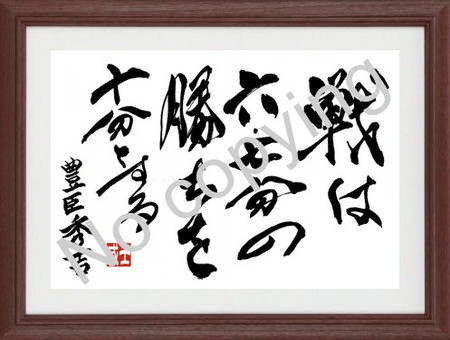 戦は
六・七分の
勝ちを
十分とする
豊臣秀吉
No copying